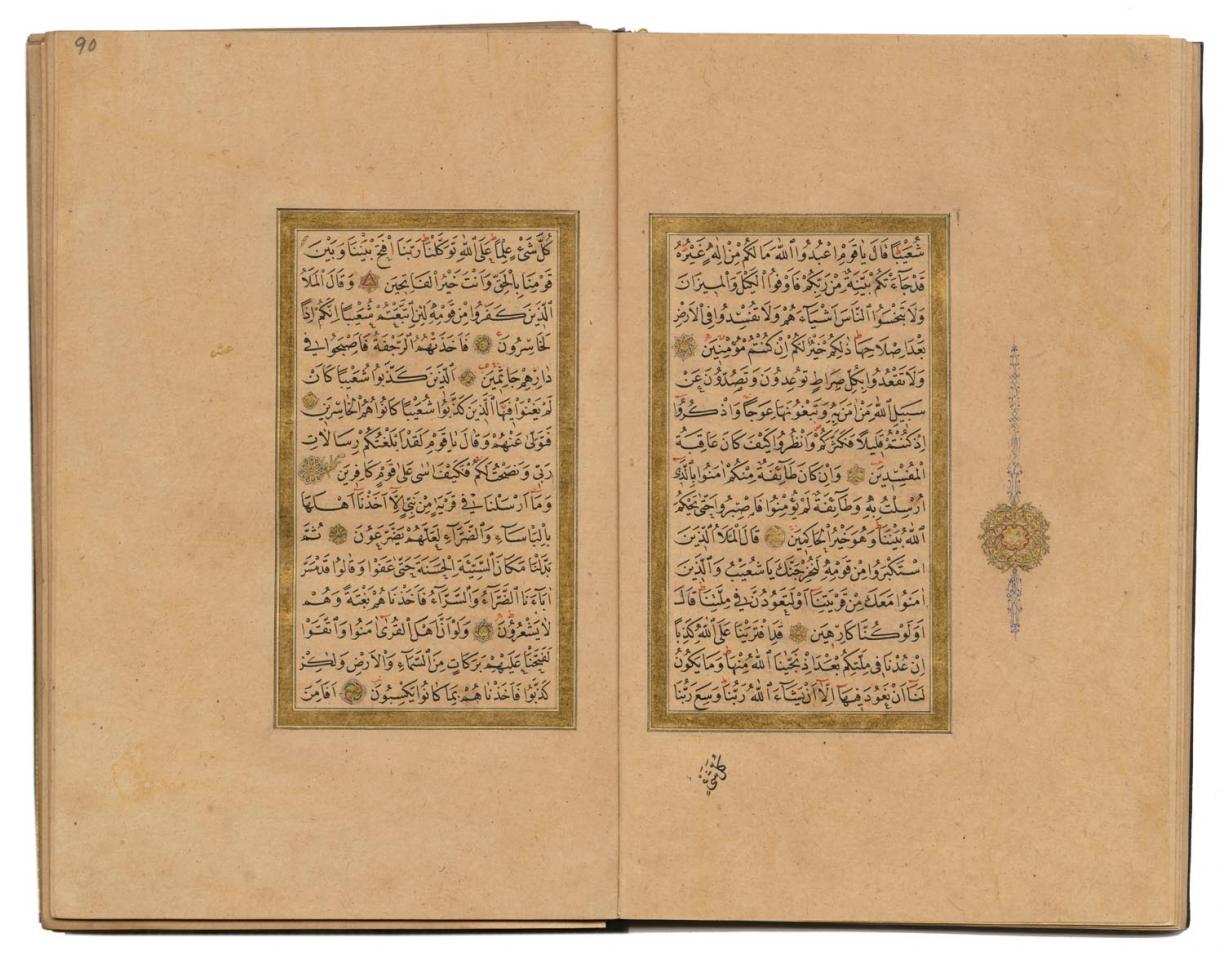 شُعَيْبًا قَالَ يَاقَوْمِ اعْبُدُوا اللّٰهَ مَالَكُمْ مِنْ اِلٰهٍ غَيْرُهُ
قَدْ جَاءَتْكُمْ بَيِّنَةٌ مِنْ رَبِّكُمْ فَاَوْفُوا الْكَيْلَ وَالْمِيزَانَ
وَلَا تَبْخَسُوا النَّاسَ اَشْيَاءَهُمْ وَلَا تُفْسِدُوا فِي الْاَرْضِ
بَعْدَ اِصْلَاحِهَا ذٰلِكُمْ خَيْرٌ لَكُمْ اِنْ كُنْتُمْ مُؤْمِنِينَ
وَلَا تَقْعُدُوا بِكُلِّ صِرَاطٍ تُوعِدُونَ وَتَصُدُّونَ عَنْ
سَبِيلِ اللّٰهِ مَنْ اٰمَنَ بِهِ وَتَبْغُونَهَا عِوَجًا وَاذْكُرُوا
اِذْ كُنْتُمْ قَلِيلًا فَكَثَّرَكُمْ وَانْظُرُوا كَيْفَ كَانَ عَاقِبَةُ
الْمُفْسِدِينَ وَاِنْ كَانَ طَائِفَةٌ مِنْكُمْ اٰمَنُوا بِالَّذِي
اُرْسِلْتُ بِهِ وَطَائِفَةٌ لَمْ يُؤْمِنُوا فَاصْبِرُوا حَتّٰى يَحْكُمَ
اللّٰهُ بَيْنَنَا وَهُوَ خَيْرُ الْحَاكِمِينَ قَالَ الْمَلَاُ الَّذِينَ
اسْتَكْبَرُوا مِنْ قَوْمِهِ لَنُخْرِجَنَّكَ يَا شُعَيْبُ وَالَّذِينَ
اٰمَنُوا مَعَكَ مِنْ قَرْيَتِنَا اَوْ لَتَعُودُنَّ فِي مِلَّتِنَا قَالَ
اَوَلَوْ كُنَّا كَارِهِينَ قَدِ افْتَرَيْنَا عَلَى اللّٰهِ كَذِبًا
اِنْ عُدْنَا فِي مِلَّتِكُمْ بَعْدَ اِذْ نَجّٰينَا اللّٰهُ مِنْهَا وَمَا يَكُونُ
لَنَا اَنْ نَعُودَ فِيهَا اِلَّا اَنْ يَشَاءَ اللّٰهُ رَبُّنَا وَسِعَ رَبُّنَا
كُلَّ شَيْءٍ
90
كُلَّ شَيْءٍ عِلْمًا عَلَى اللّٰهِ تَوَكَّلْنَا رَبَّنَا افْتَحْ بَيْنَنَا وَبَيْنَ
قَوْمِنَا بِالْحَقِّ وَاَنْتَ خَيْرُ الْفَاتِحِينَ وَقَالَ الْمَلَاُ
الَّذِينَ كَفَرُوا مِنْ قَوْمِهِ لَئِنِ اتَّبَعْتُمْ شُعَيْبًا اِنَّكُمْ اِذًا
لَخَاسِرُونَ فَاَخَذَتْهُمُ الرَّجْفَةُ فَاَصْبَحُوا فِي
دَارِهِمْ جَاثِمِينَ الَّذِينَ كَذَّبُوا شُعَيْبًا كَاَنْ
لَمْ يَغْنَوْا فِيهَا الَّذِينَ كَذَّبُوا شُعَيْبًا كَانُوا هُمُ الْخَاسِرِينَ
فَتَوَلّٰى عَنْهُمْ وَقَالَ يَاقَوْمِ لَقَدْ اَبْلَغْتُكُمْ رِسَالَاتِ
رَبِّي وَنَصَحْتُ لَكُمْ فَكَيْفَ اٰسٰى عَلٰى قَوْمٍ كَافِرِينَ
وَمَا اَرْسَلْنَا فِي قَرْيَةٍ مِنْ نَبِيٍّ اِلَّا اَخَذْنَا اَهْلَهَا
بِالْبَاْسَاءِ وَالضَّرَّاءِ لَعَلَّهُمْ يَضَّرَّعُونَ ثُمَّ
بَدَّلْنَا مَكَانَ السَّيِّئَةِ الْحَسَنَةَ حَتّٰى عَفَوْا وَقَالُوا قَدْ مَسَّ
اٰبَاءَنَا الضَّرَّاءُ وَالسَّرَّاءُ فَاَخَذْنَاهُمْ بَغْتَةً وَهُمْ
لَا يَشْعُرُونَ وَلَوْ اَنَّ اَهْلَ الْقُرٰى اٰمَنُوا وَاتَّقَوْا
لَفَتَحْنَا عَلَيْهِمْ بَرَكَاتٍ مِنَ السَّمَاءِ وَالْاَرْضِ وَلٰكِنْ
كَذَّبُوا فَاَخَذْنَاهُمْ بِمَا كَانُوا يَكْسِبُونَ اَفَاَمِنَ